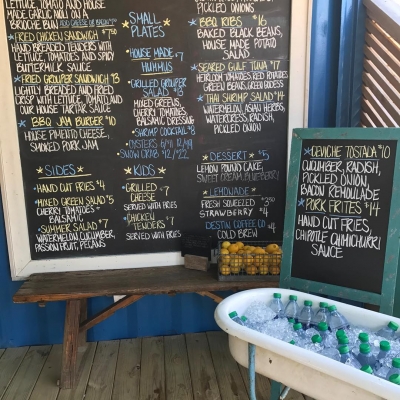 LETTUCE, TOMATO AND
HOUSE MADE
GARLIC AIOLI ON A
BRIOCHE BUN
FRIED CHICKEN SANDWICH
HAND BREADED TENDERS WITH
LETTUCE, TOMATOES AND SPICY
BUTTERMILK SAUCE
FRIED GROUPER SANDWICH
LIGHTLY BREADED AND FRIED
CRISP WITH LETTUCE, TOMATO, AND
OUR HOUSE TARTAR SAUCE
BBQ JAM BURGER $10
HOUSE PIMENTO CHEESE,
SMOKED PORK JAM
SIDES
HAND CUT FRIES $4
MIXED GREEN SALAD $5
CHERRY TOMATOES -
BALSAMIC
SUMMER SALAD $7
WATERMELON, CUCUMBER,
PASSION FRUIT, PECANS
SMALL
PLATES
HOUSE MADE $7
HUMMUS
GRILLED GROUPER
SALAD
MIXED GREENS,
CHERRY TOMATOES,
BALSAMIC DRESSING
SHRIMP COCKTAIL $8
OYSTERS
KIDS
GRILLED $7
CHEESE
SERVED WITH FRIES
CHICKEN $7
TENDERS
SERVED WITH FRIES
BBQ RIBS $16
BAKED BLACK BEANS,
HOUSE MADE POTATO
SALAD
SEARED GULF TUNA $17
HEIRLOOM TOMATOES, RED POTATOES
GREEN BEANS, GREEN GODDESS
THAI SHRIMP SALAD $14
WATERMELON, ASIAN HERBS,
WATERCRESS, RADISH,
PICKLED ONION
DESSERT $5
LEMON POUND CAKE,
SWEET CREAM, BLUEBERRY
LEMONADE
FRESH SQUEEZED
STRAWBERRY $4
DESTIN COFFEE CO $4
COLD BREW
CEVICHE TOSTADA $10
CUCUMBER, RADISH,
PICKLED ONION,
BACON REMOULADE
PORK FRITES $14
HAND CUT FRIES,
CHIPOTLE CHIMICHURRI
SAUCE